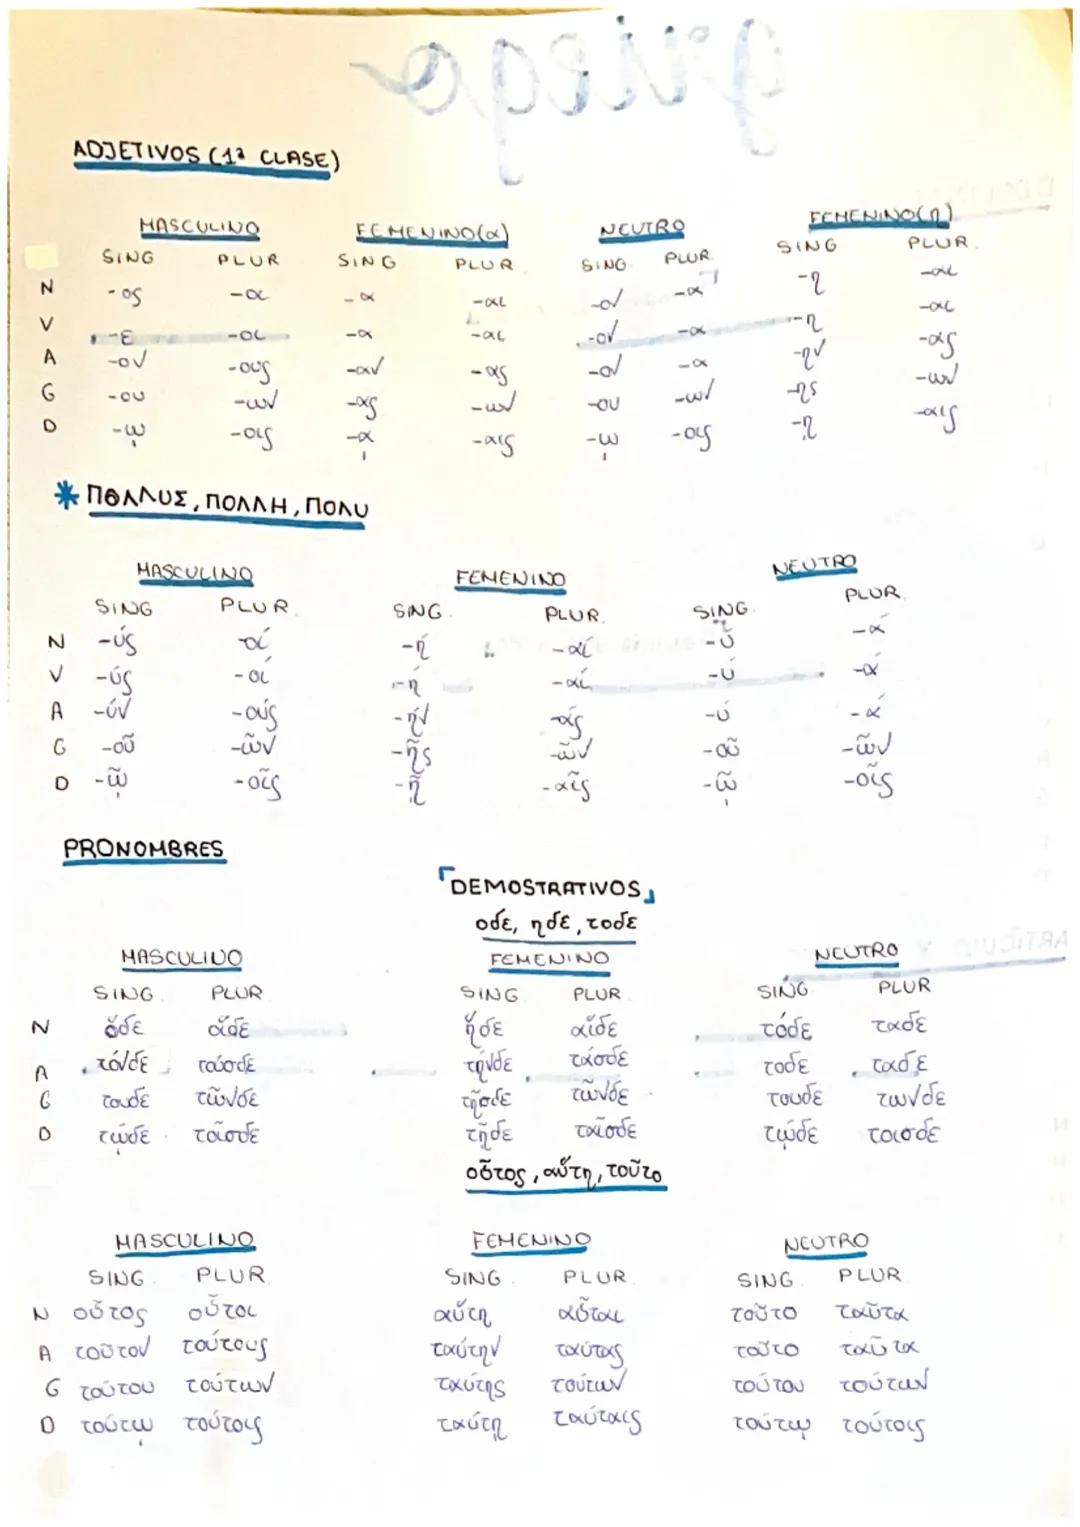 griego
ADJETIVOS (1ª CLASE)
MASCULINO FEMENINO(α) NEUTRO FEMENINO(η)
SING PLUR SING PLUR SING. PLUR. SING PLUR.
N -ος -οι -α -αι -ον -α -η -αι
V -ε -οι -α -αι -ον -α -η -αι
A -ον -ους -αν -ας -ον -α -ην -ας
G -ου -ων -ας -ων -ου -ων -ης -ων
D -ῳ -οις -ᾳ -αις -ῳ -οις -η -αις
* ΠΟΛΛΥΣ, ΠΟΛΛΗ, ΠΟΛΥ
MASCULINO FEMENINO NEUTRO
SING PLUR. SING. PLUR. SING. PLUR.
N -ύς -οί -ή -αί -ύ -ά
V -ύς -οί -ή -αί -ύ -ά
A -ύν -ούς -ήν -άς -ύ -ά
G -οῦ -ῶν -ῆς -ῶν -οῦ -ῶν
D -ῷ -οῖς -ῇ -αῖς -ῷ -οῖς
PRONOMBRES
「DEMOSTRATIVOS」
οδε, ηδε, τοδε
MASCULINO FEMENINO NEUTRO
SING. PLUR SING. PLUR. SING PLUR
N ὅδε οἵδε ἥδε αἵδε τόδε ταδε
A τόνδε τούσδε τήνδε τάσδε τοδε ταδε
G τουδε τῶνδε τῆσδε τῶνδε τουδε τωνδε
D τῳδε τοῖσδε τῇδε ταῖσδε τῳδε τοισδε
οὗτος, αὕτη, τοῦτο
MASCULINO FEMENINO NEUTRO
SING. PLUR. SING. PLUR. SING. PLUR.
N οὗτος οὗτοι αὕτη αὗται τοῦτο ταῦτα
A τοῦτον τούτους ταύτην ταύτας τοῦτο ταῦτα
G τούτου τούτων ταύτης τούτων τούτου τούτων
D τούτῳ τούτοις ταύτῃ ταύταις τούτῳ τούτοις